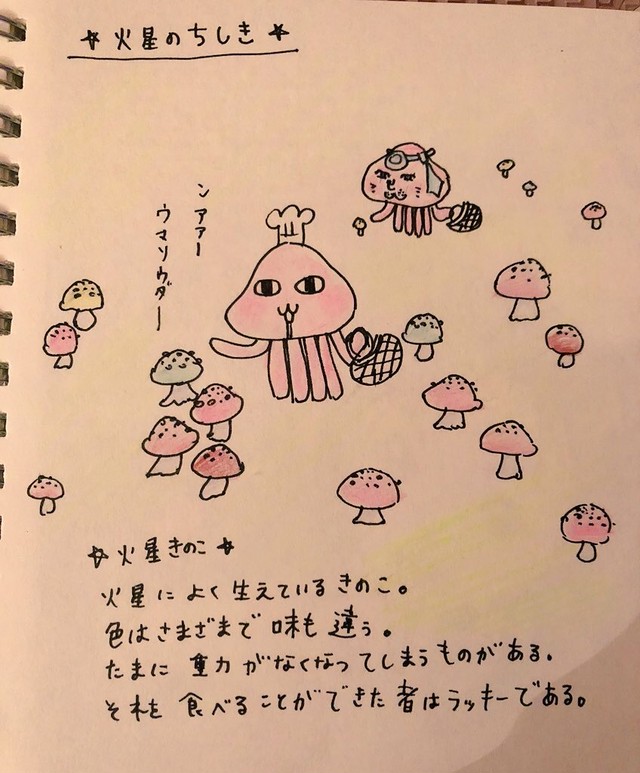 ☆火星のちしき☆
ン アァー
ウマソウダー
☆火星きのこ☆
火星によく生えているきのこ。
色はさまざまで味も違う。
たまに重力がなくなってしまうものがある。
それを食べることができた者はラッキーである。